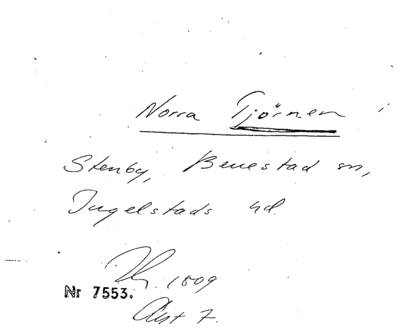 Norra Tjörnen i
Stenby, Benestad sn,
Ingelstads hd.
1809
Nr 7553.
Avst 7.